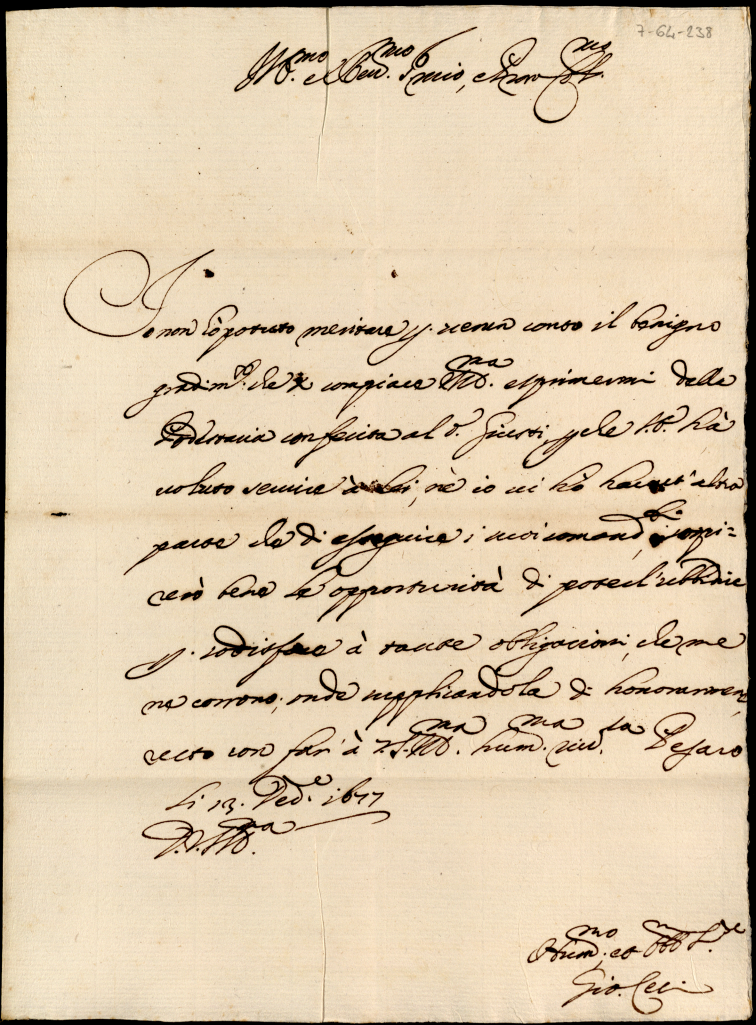 7-64-238
Ill.mo e Rev.mo Sig.re mio, e Pron Col.mo
Io non hò potuto meritare p. verun conto il benigno
gradim.to che si compiace V.S. Ill.ma esprimermi della
Podestaria conferita al S. Giusti, p. che S.A. hà
voluto servire à Lei, nè io vi hò havut' altra
parte che di eseguire i suoi comand.ti sospi-
rerò bene le opportunità di poterl' ubbidire
p. sodisfare à tante obligazioni, che me
ne corrono; onde supplicandola di honorarmene
resto con far' à V.S. Ill.ma hum.ma riv.za Pesaro
li 13. Xbre 1677
D.V.S. Ill.ma
Hum.mo et Obb.mo S.re
Gio.